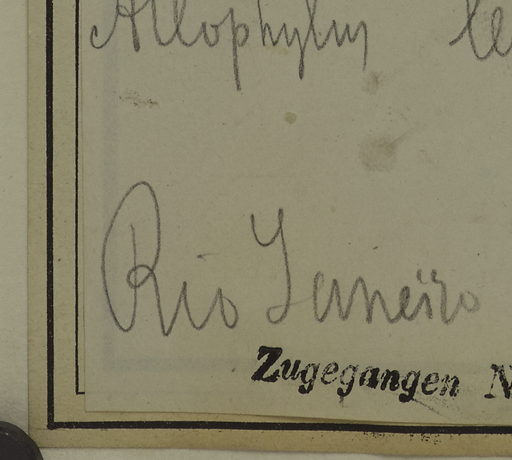 Allophylus le
Rio Janeiro
Zugegangen N